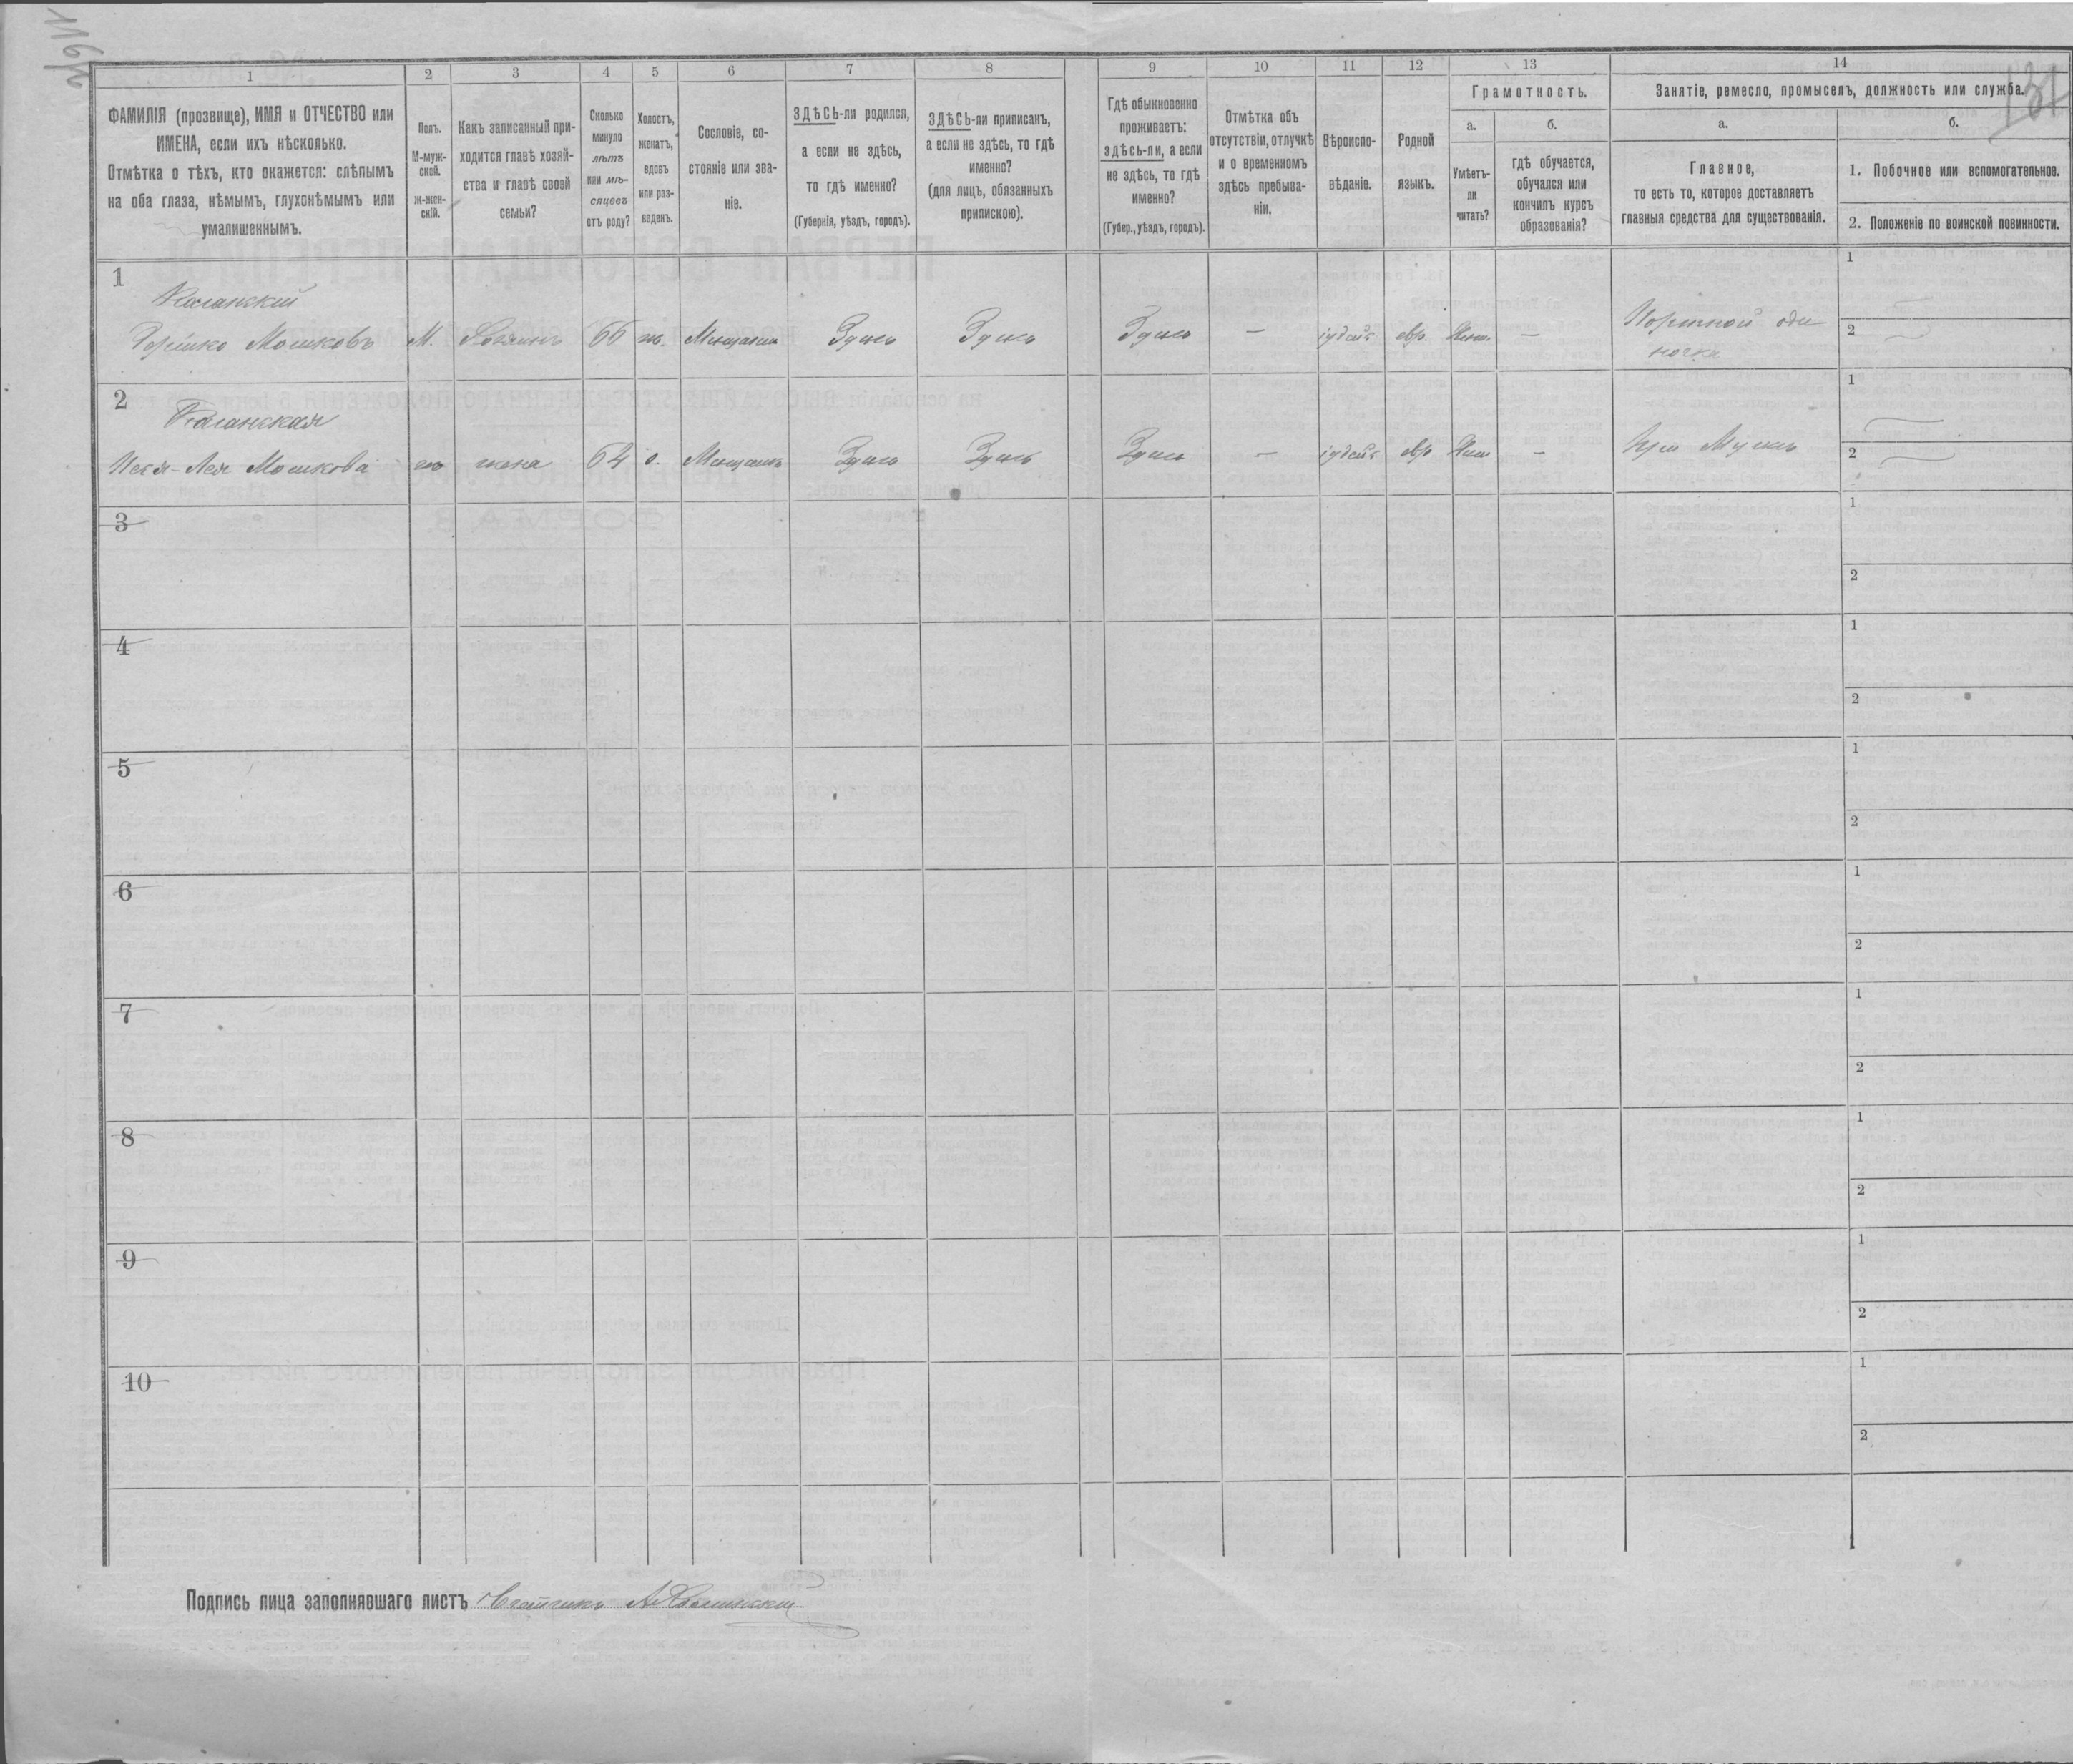 116/2
137
1 2 3 4 5 6 7 8 9 10 11 12 13 14
ФАМИЛІЯ (прозвище), ИМЯ и ОТЧЕСТВО или
ИМЕНА, если ихъ нѣсколько.
Отмѣтка о тѣхъ, кто окажется: слѣпымъ
на оба глаза, нѣмымъ, глухонѣмымъ или
умалишеннымъ.
Полъ.
М-муж-
ской.
Ж-жен-
скій.
Какъ записанный при-
ходится главѣ хозяй-
ства и главѣ своей
семьи?
Сколько
минуло
лѣтъ
или мѣ-
сяцевъ
отъ роду?
Холостъ,
женатъ,
вдовъ
или раз-
веденъ.
Сословіе, со-
стояніе или зва-
ніе.
ЗДѢСЬ-ли родился,
а если не здѣсь,
то гдѣ именно?
(Губернія, уѣздъ, городъ).
ЗДѢСЬ-ли приписанъ,
а если не здѣсь, то гдѣ
именно?
(для лицъ, обязанныхъ
припискою).
Гдѣ обыкновенно
проживаетъ:
здѣсь-ли, а если
не здѣсь, то гдѣ
именно?
(Губер., уѣздъ, городъ).
Отмѣтка объ
отсутствіи, отлучкѣ
и о временномъ
здѣсь пребыва-
ніи.
Вѣроиспо-
вѣданіе.
Родной
языкъ.
Грамотность.
а.
Умѣетъ-
ли
читать?
б.
гдѣ обучается,
обучался или
кончилъ курсъ
образованія?
Занятіе, ремесло, промыселъ, должность или служба.
а.
Главное,
то есть то, которое доставляетъ
главныя средства для существованія.
б.
1. Побочное или вспомогательное.
2. Положеніе по воинской повинности.
1
Каганскій
Гершко Мошковъ М. Хозяинъ 66 ж. Мещанин Здѣсь Здѣсь Здѣсь — іудейс евр. — Портной оди
ночка
1
2
2
Каганская
Лея Мошкова ж жена 64 з. Мещанка Здѣсь Здѣсь Здѣсь — іудейс евр — при Мужѣ
1
2
3
1
2
4
1
2
5
1
2
6
1
2
7
1
2
8
1
2
9
1
2
10
1
2
Подпись лица заполнявшаго листъ Счетчикъ